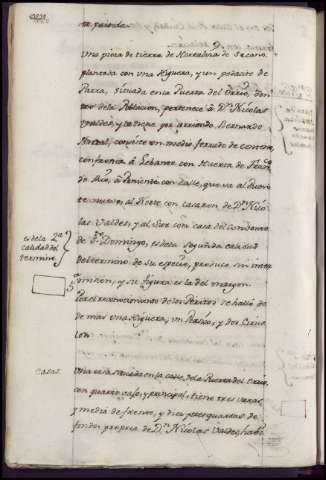 Una pieza de tierra de Hortaliza de Secano
plantada con una Higuera, y un pedazo de
Parra, situada en la Puerta del
tro de la Poblacion, pertenece à Dn Nicolas
Valdes, y la tiene por arriendo Bernardo
consiste en medio ferrado de
à Lebante con Huerta de
de à Poniente con calle, que va al Puer
to nuevo, al Norte con casaron de Dn Nico
las Valdes, y al Sur con casa del Combento
de Sto Domingo, es de la segunda calidad
del termino de su especie, produce sin inter
mision, y su figura es la del margen
Por el reconocimiento de los Peritos se halló
de mas una Higuera, un y dos Cirue
los
es de la 2a
calidad del
termino
Casas.
Una casa sita en la calle de la Puerta del
con quarto vajo, y principal, tiene tres varas,
y media de frente, y diez y tres quartas de
fondo, propria de Dn Nicolas Valdes,